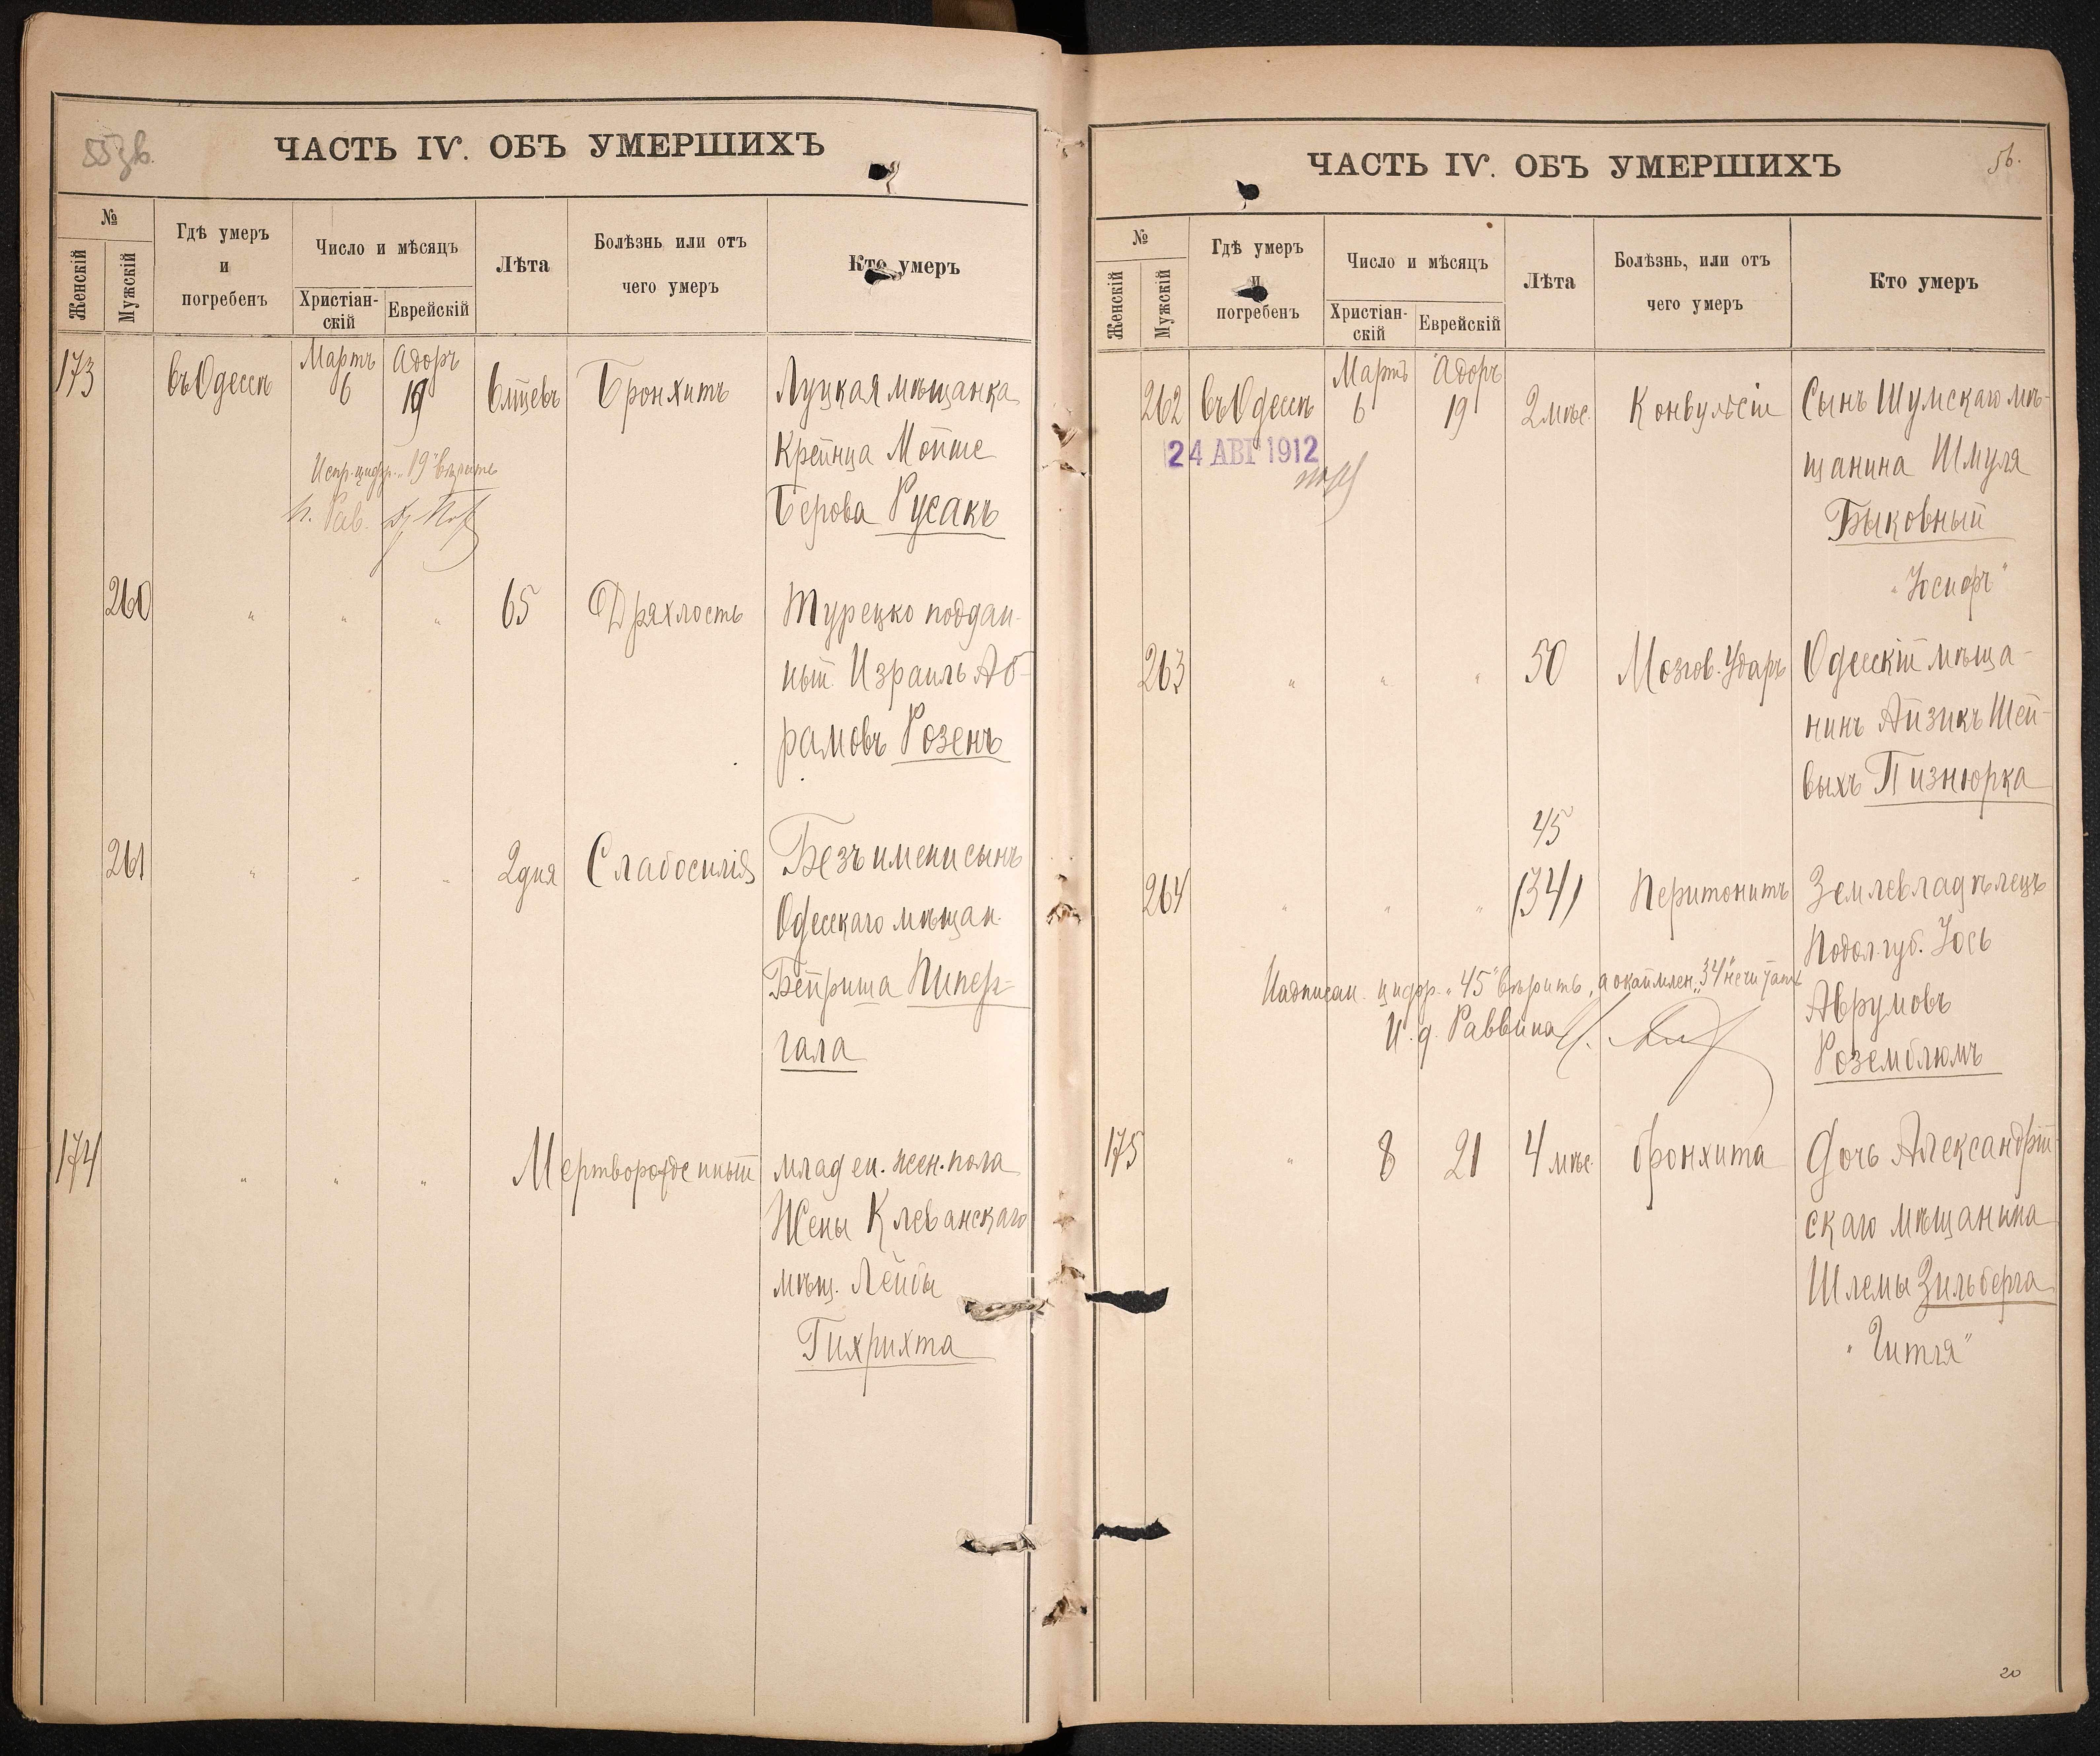 55 зв.
ЧАСТЬ IV. ОБЪ УМЕРШИХЪ
№
Женскій
Мужскій
Гдѣ умеръ
и
погребенъ
Число и мѣсяцъ
Христіан-
скій
Еврейскій
Лѣта
Болѣзнь или отъ
чего умеръ
Кто умеръ
173
въ Одессѣ
Мартъ
6
Адоръ
19
Бронхитъ
Луцкая мѣщанка
Крейнца Мойше
Берова Русакъ
Испр. цифр. "19" вѣрить
Рав.
260
" " "
65
Дряхлость
Турецко поддан-
ный Израиль Аб-
рамовъ Розенъ
261
" " "
2 дня
Слабосилія
Безъ имени сынъ
Одесскаго мѣщан.
Бейриша Пипер-
гала
174
" " "
Мертворожденный
младен. жен. пола
Жены Клеванскаго
мѣщ. Лейбы
Гихрихта
56.
ЧАСТЬ IV. ОБЪ УМЕРШИХЪ
№
Женскій
Мужскій
Гдѣ умеръ
и
погребенъ
Число и мѣсяцъ
Христіан-
скій
Еврейскій
Лѣта
Болѣзнь, или отъ
чего умеръ
Кто умеръ
262
въ Одессѣ
Мартъ
6
Адоръ
19
2 мѣс.
Конвульсіи
Сынъ Шумскаго мѣ-
щанина Шмуля
Быковный
"Іосифъ"
24 АВГ 1912
263
" " "
50
Мозгов. Ударъ
Одесскій мѣща-
нинъ Айзикъ Шей-
выхъ Пизнюрка
45
264
" " "
(34)
Перитонитъ
Землевладѣлецъ
Подол. губ. Іось
Аврумовъ
Роземблюмъ
Надписан. цифр. "45" вѣрить, а окаймлен. "34" не читать
И. д. Раввина
175
"
8
21
4 мѣс.
бронхита
Дочь Александрій-
скаго мѣщанина
Шлемы Зильберга
"Гитля"
20